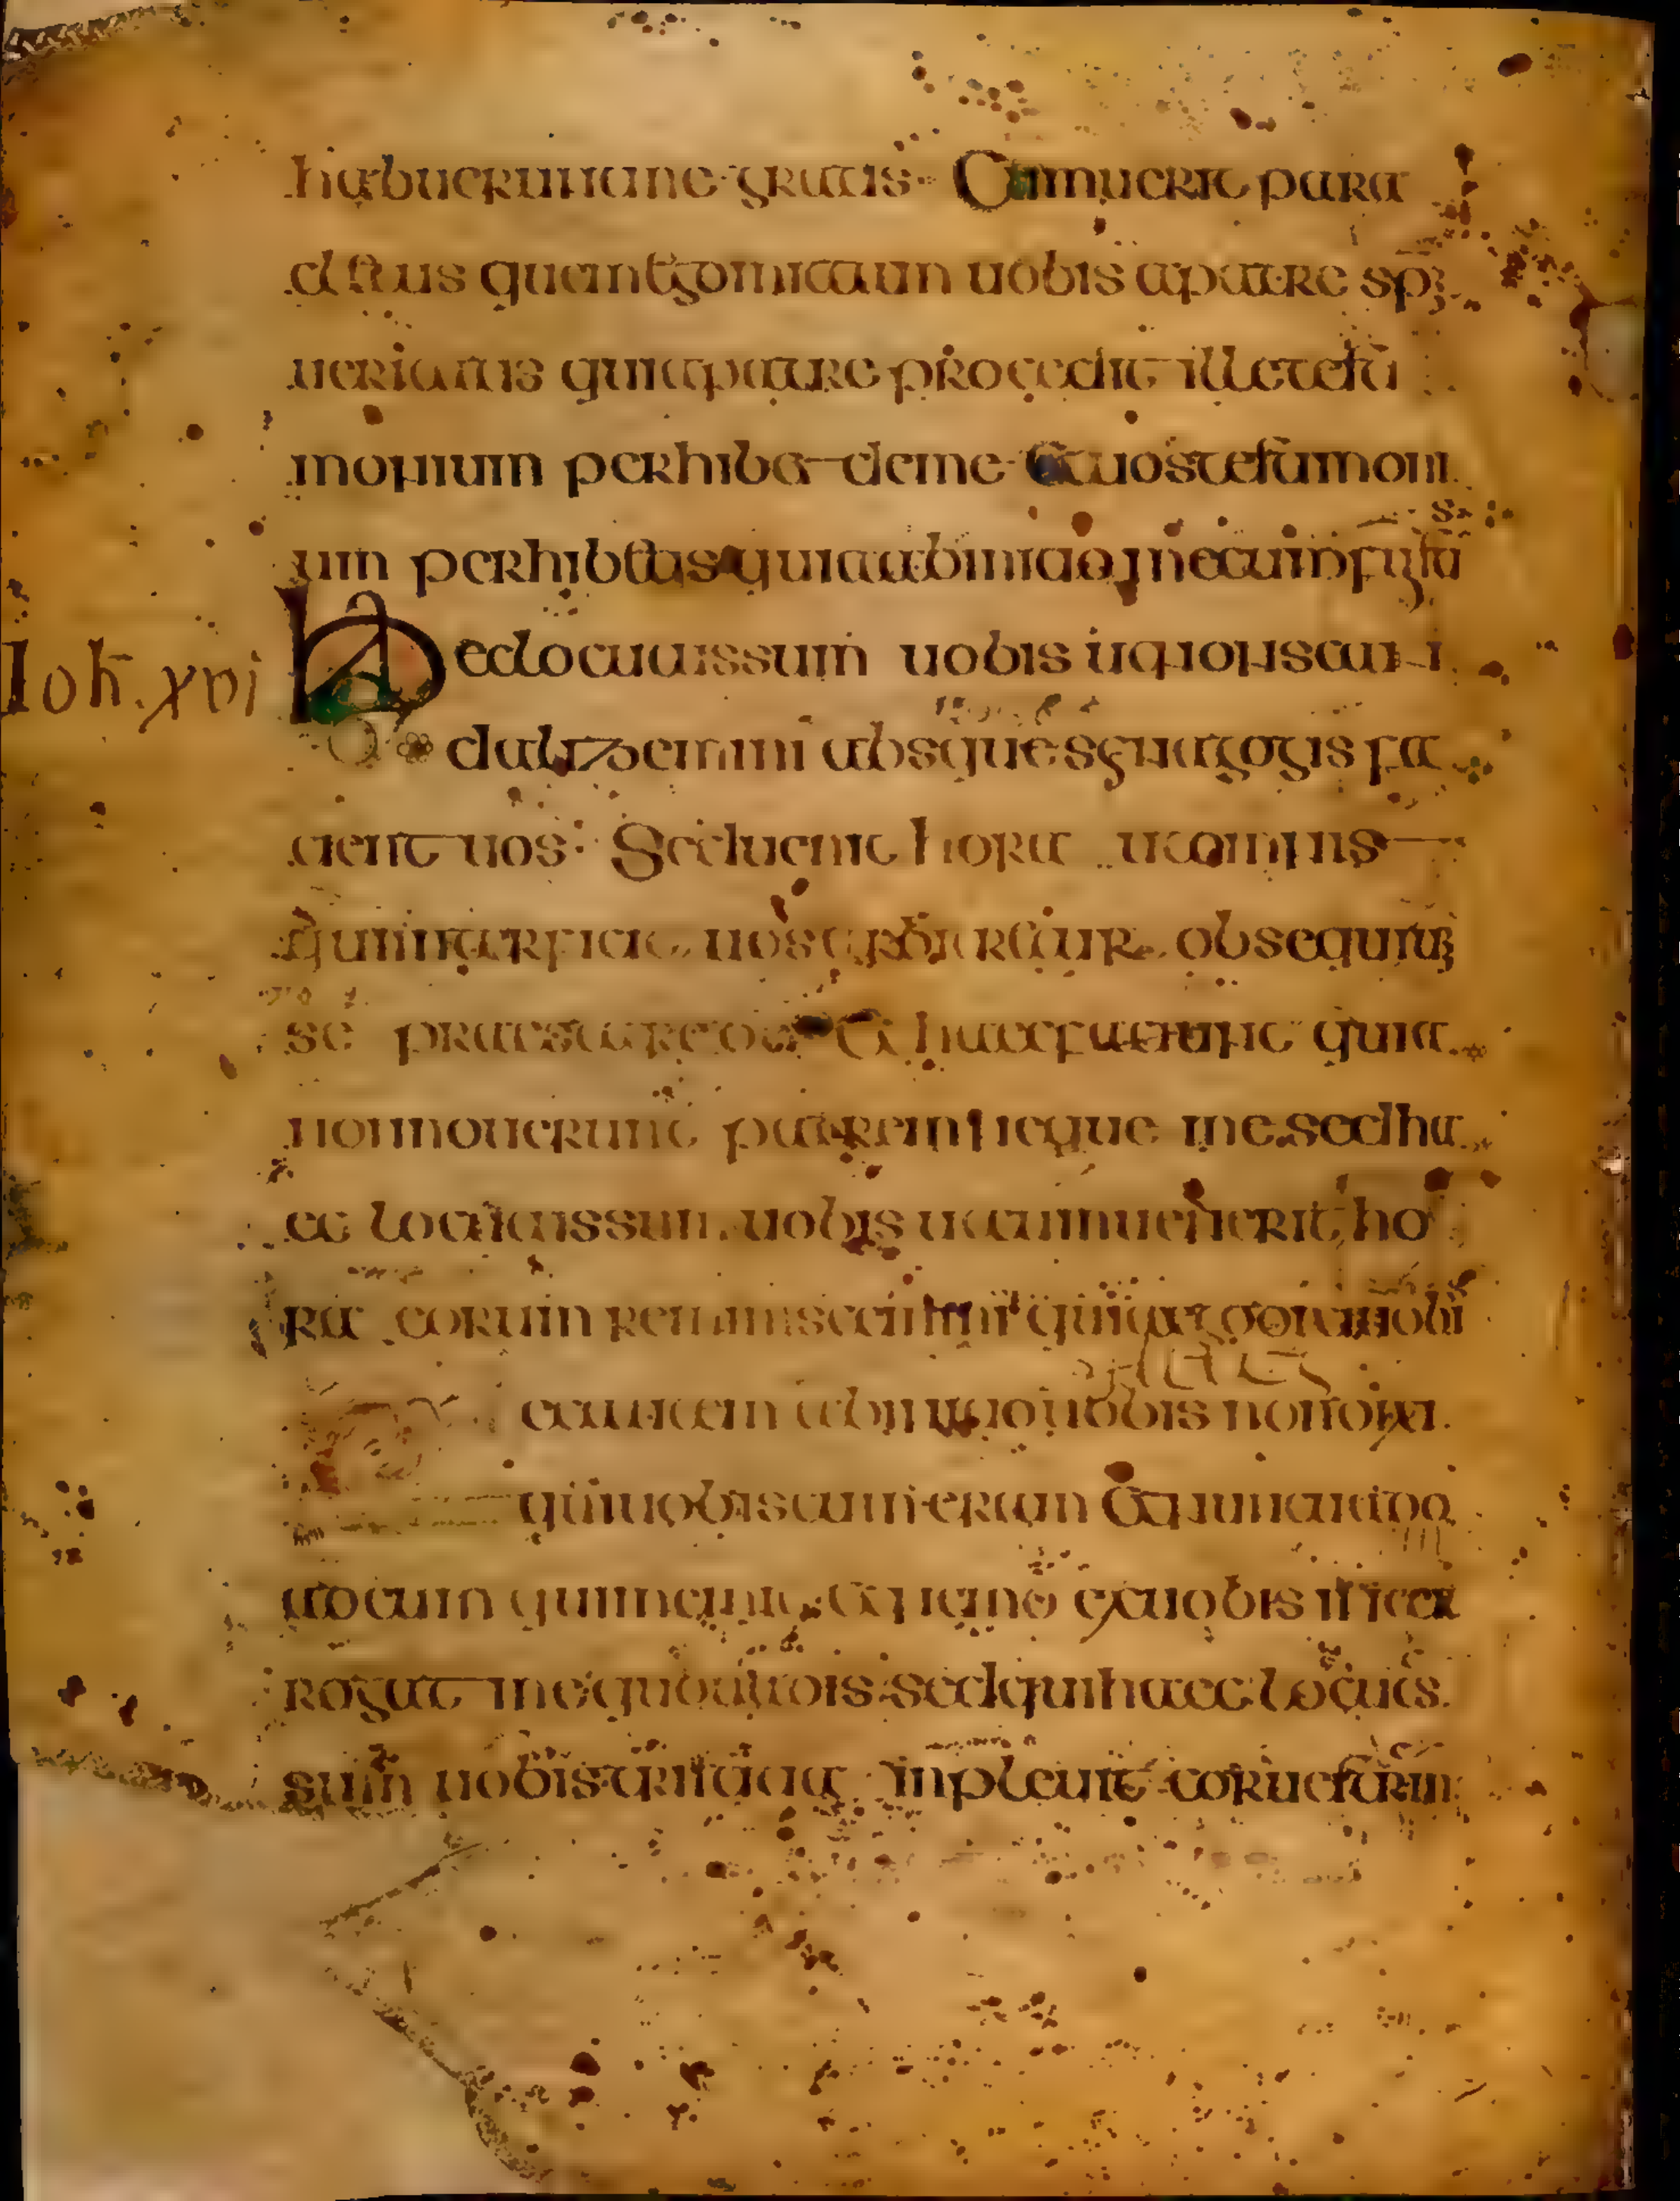 habuerunt me gratis Cum uenerit para
clitus quem ego mittam uobis a patre sp̄m
ueritatis qui a patre procedit ille testi
monium perhibet de me Et uos testimoni
um perhibetis quia ab initio mecum
Ioh. xvi Haec locutus sum uobis ut non scan
dalizemini absque synagogis fa
cient uos· Sed uenit hora ut omnis
qui interficit uos arbitretur obsequium
se praestare deo Et haec facient quia
non nouerunt patrem neque me sed ha
ec locutus sum uobis ut cum uenerit ho
ra eorum reminiscemini quia ego uobis
autem ab initio uobis non dixi
quia uobiscum eram Et nunc uado
qui me Et nemo ex uobis inter
rogat me quo uadis sed quia haec locutus
sum uobis tristitia inpleuit cor uestrum